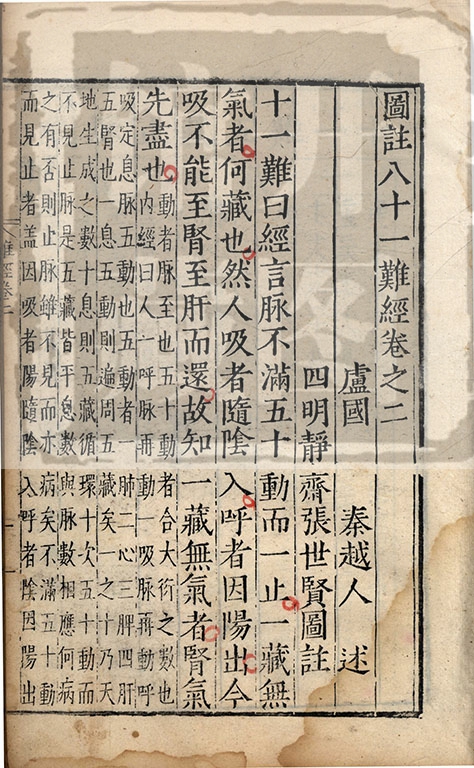 圖註八十一難經卷之二
盧國 秦越人 述
四明靜齋張世賢圖註
十一難曰經言脈不滿五十動而一止一藏無
氣者何藏也然人吸者隨陰入呼者因陽出今
吸不能至腎至肝而還故知一藏無氣者腎氣
先盡也
動者脈至也五十動者合大衍之數也
內經曰人一呼脈再動一吸脈再動呼
吸定息脈五動也五動者一肺二心三脾四肝
五腎也一息五動則遍周五藏矣一之十乃天
地生成之數十息則五藏循環十次五十動而
不見止脈是五藏皆平息數與脈數相應何病
之有否則止脈雖不見而亦病矣不滿五十動
而見止者盖因吸者陽隨陰入呼者陰因陽出
難經卷二